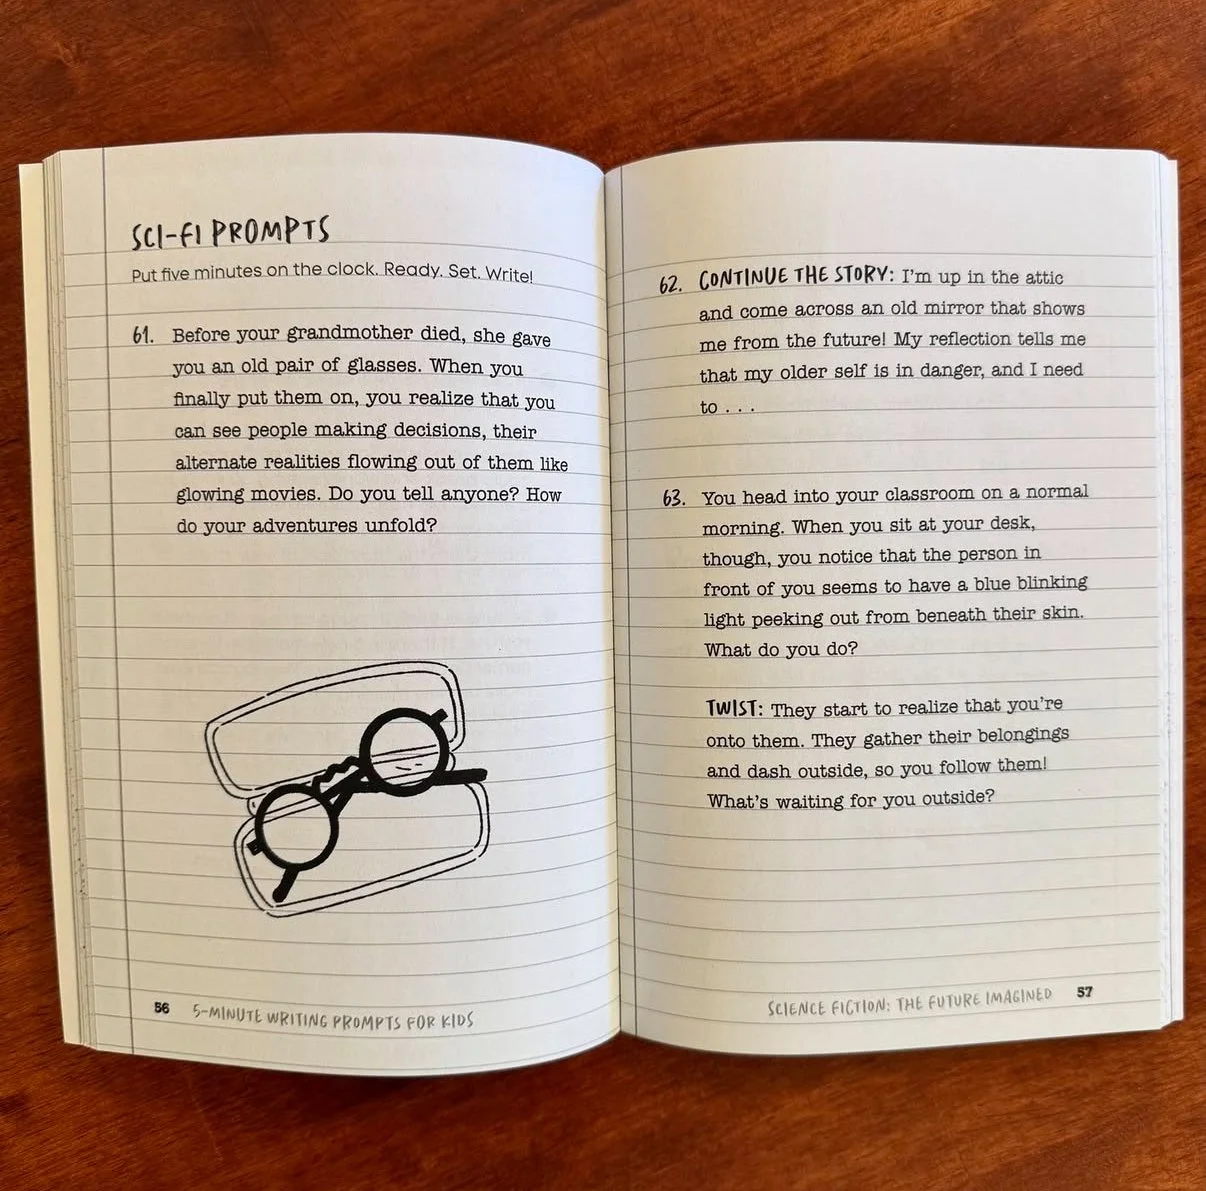 SCI-FI PROMPTS
Put five minutes on the clock. Ready. Set. Write!
61. Before your grandmother died, she gave
you an old pair of glasses. When you
finally put them on, you realize that you
can see people making decisions, their
alternate realities flowing out of them like
glowing movies. Do you tell anyone? How
do your adventures unfold?
56 5-MINUTE WRITING PROMPTS FOR KIDS
62. CONTINUE THE STORY: I'm up in the attic
and come across an old mirror that shows
me from the future! My reflection tells me
that my older self is in danger, and I need
to . . .
63. You head into your classroom on a normal
morning. When you sit at your desk,
though, you notice that the person in
front of you seems to have a blue blinking
light peeking out from beneath their skin.
What do you do?
TWIST: They start to realize that you're
onto them. They gather their belongings
and dash outside, so you follow them!
What's waiting for you outside?
SCIENCE FICTION: THE FUTURE IMAGINED 57